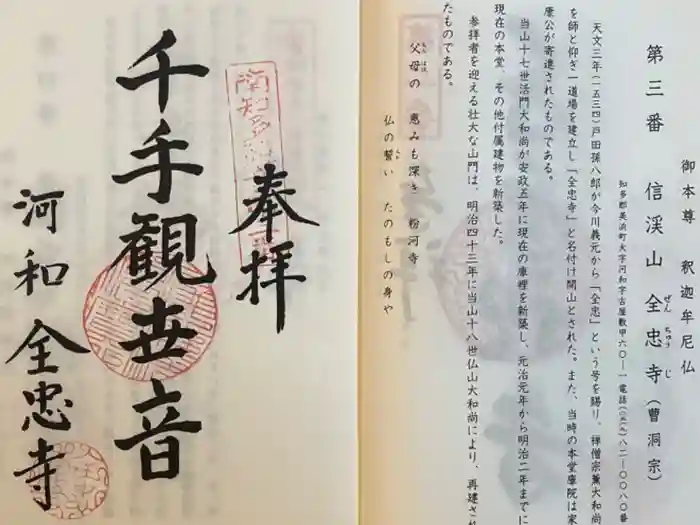 御本尊 釈迦牟尼仏
第三番 信渓山 全忠寺(曹洞宗)
ぜん ちゅう じ
知多郡美浜町大字河和字古屋敷甲六〇ー一 電話(〇五六九)八二ー〇〇八〇番
天文三年(一五三四)戸田孫八郎が今川義元から「全忠」という号を賜り、禅僧宗薫大和尚
を師と仰ぎ一道場を建立し「全忠寺」と名付け開山とされた。また、当時の本堂庫院は家
康公が寄進されたものである。
当山十七世活門大和尚が安政五年に現在の庫裡を新築し、元治元年から明治二年までに
現在の本堂、その他付属建物を新築した。
参拝者を迎える壮大な山門は、明治四十三年に当山十八世仏山大和尚により、再建され
たものである。
父母の 恵みも深き 粉河寺
仏の誓い たのもしの身や
奉拝
南知多
千手観世音
河和 全忠寺